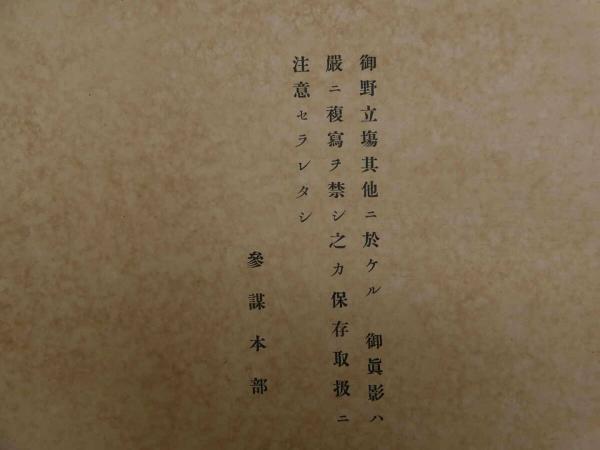 御野立塲其他ニ於ケル　御眞影ハ
嚴ニ複寫ヲ禁シ之カ保存取扱ニ
注意セラレタシ
參謀本部